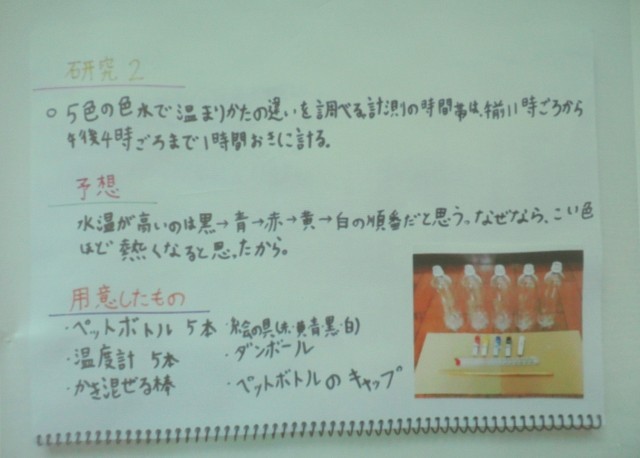 研究2
○ 5色の色水で温まりかたの違いを調べる。計測の時間帯は、午前11時ごろから
午後4時ごろまで1時間おきに計る。
予想
水温が高いのは黒→青→赤→黄→白の順番だと思う。なぜなら、こい色
ほど熱くなると思ったから。
用意したもの
・ペットボトル 5本 ・絵の具(赤・黄・青・黒・白)
・温度計 5本 ・ダンボール
・かき混ぜる棒 ・ペットボトルのキャップ